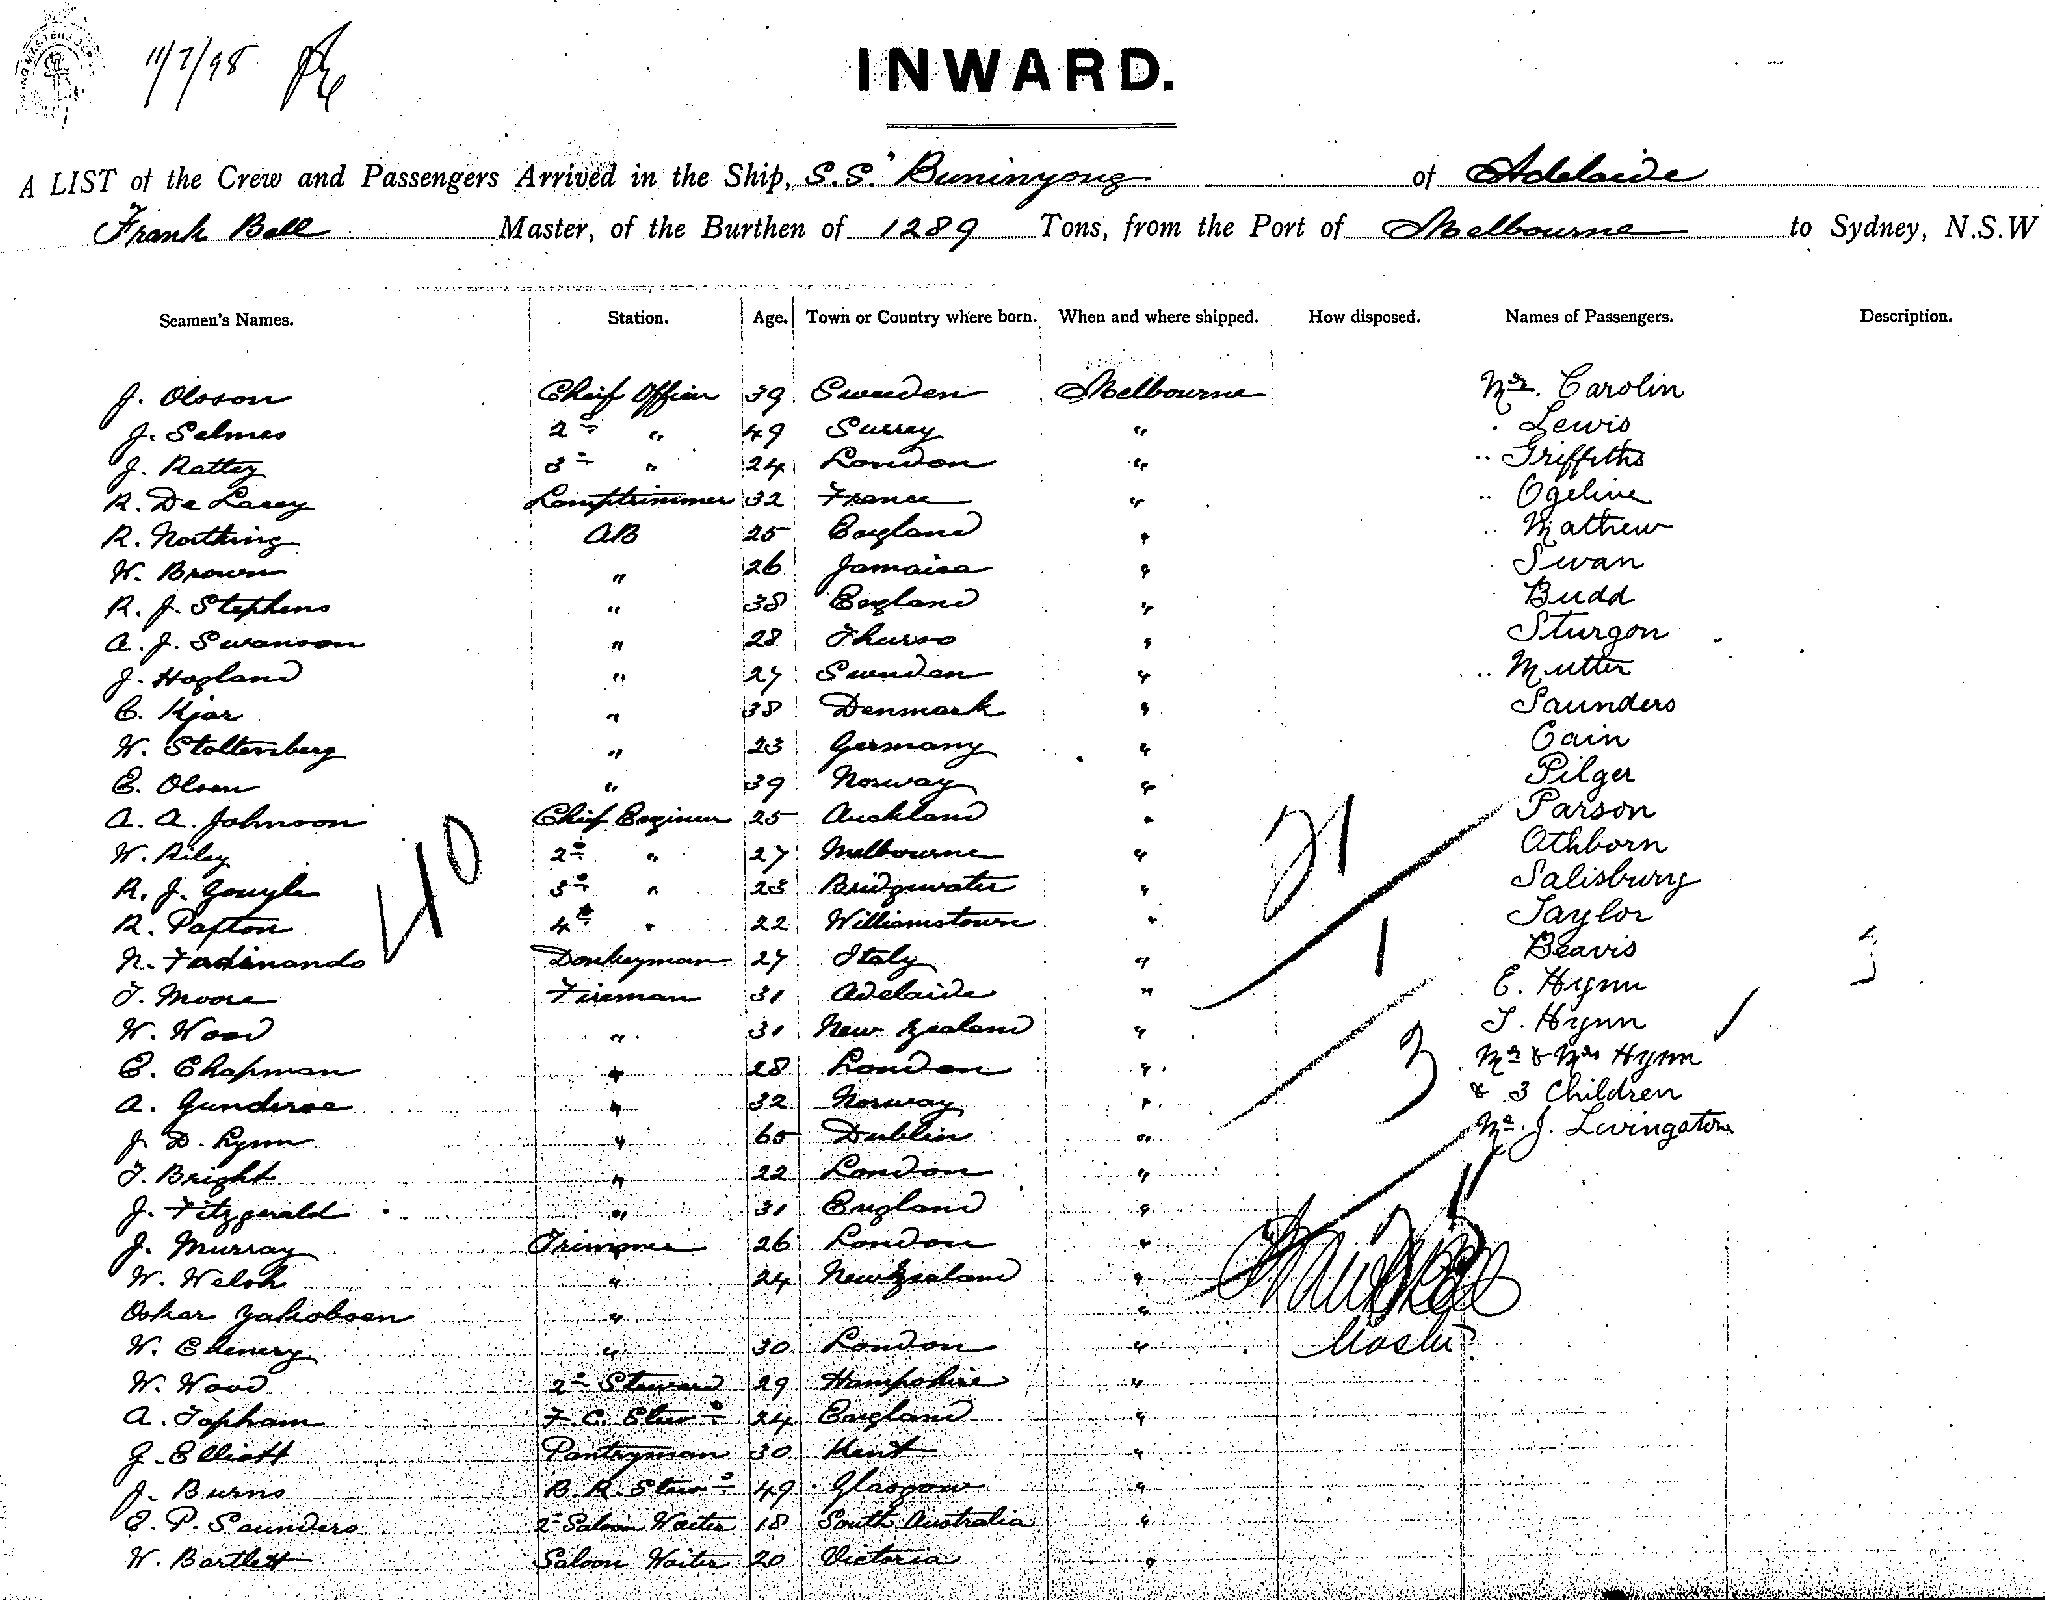 11/7/98
INWARD.
A LIST of the Crew and Passengers Arrived in the Ship, S.S. Buninyong of Adelaide
Frank Bell Master, of the Burthen of 1289 Tons, from the Port of Melbourne to Sydney, N.S.W
Seamen's Names. Station. Age. Town or Country where born. When and where shipped. How disposed. Names of Passengers. Description.
J. Olsson Chief Officer 39 Sweden Melbourne Mr. Carolin
J. Selmes 2nd " 49 Surrey " " Lewis
J. Rattey 3rd " 24 London " " Griffiths
R. De Lacey Lamptrimmer 32 France " " Ogeline
R. Northing AB 25 England " " Mathew
W. Brown " 26 Jamaica " Swan
R. J. Stephens " 38 England " Budd
A. J. Swanson " 28 Thurso " Sturgon
J. Hogland " 27 Sweden " " Mutter
C. Kjar " 38 Denmark " Saunders
W. Stoltenberg " 23 Germany " Cain
E. Olsen " 39 Norway " Pilger
A. A. Johnson Chief Engineer 25 Auckland " Parson
W. Riley 2nd " 27 Melbourne " Athborn
R. J. Gouyle 3rd " 23 Bridgewater " Salisbury
R. Paxton 4th " 22 Williamstown " Taylor
N. Ferdinando Donkeyman 27 Italy " Beavis
T. Moore Fireman 31 Adelaide " E. Hynn
W. Wood " 31 New Zealand " T. Hynn
E. Chapman " 28 London " Mr & Mrs Hynn
A. Gunderse " 32 Norway " & 3 Children
J. D. Lynn " 65 Dublin " Mr. J. Livingstone
T. Bright " 22 London "
J. Fitzgerald " 31 England "
J. Murray Trimmer 26 London "
W. Welsh " 24 New Zealand "
Oskar Yakobsen " "
W. Chenery " 30 London " Master
W. Wood 2nd Steward 29 Hampshire "
A. Topham F. C. Stewd 24 England "
J. Elliott Pantryman 30 Kent "
J. Burns B. R. Stewd 49 Glasgow "
E. P. Saunders 2nd Saloon Waiter 18 South Australia "
W. Bartlett Saloon Waiter 20 Victoria "
40
21
1
3